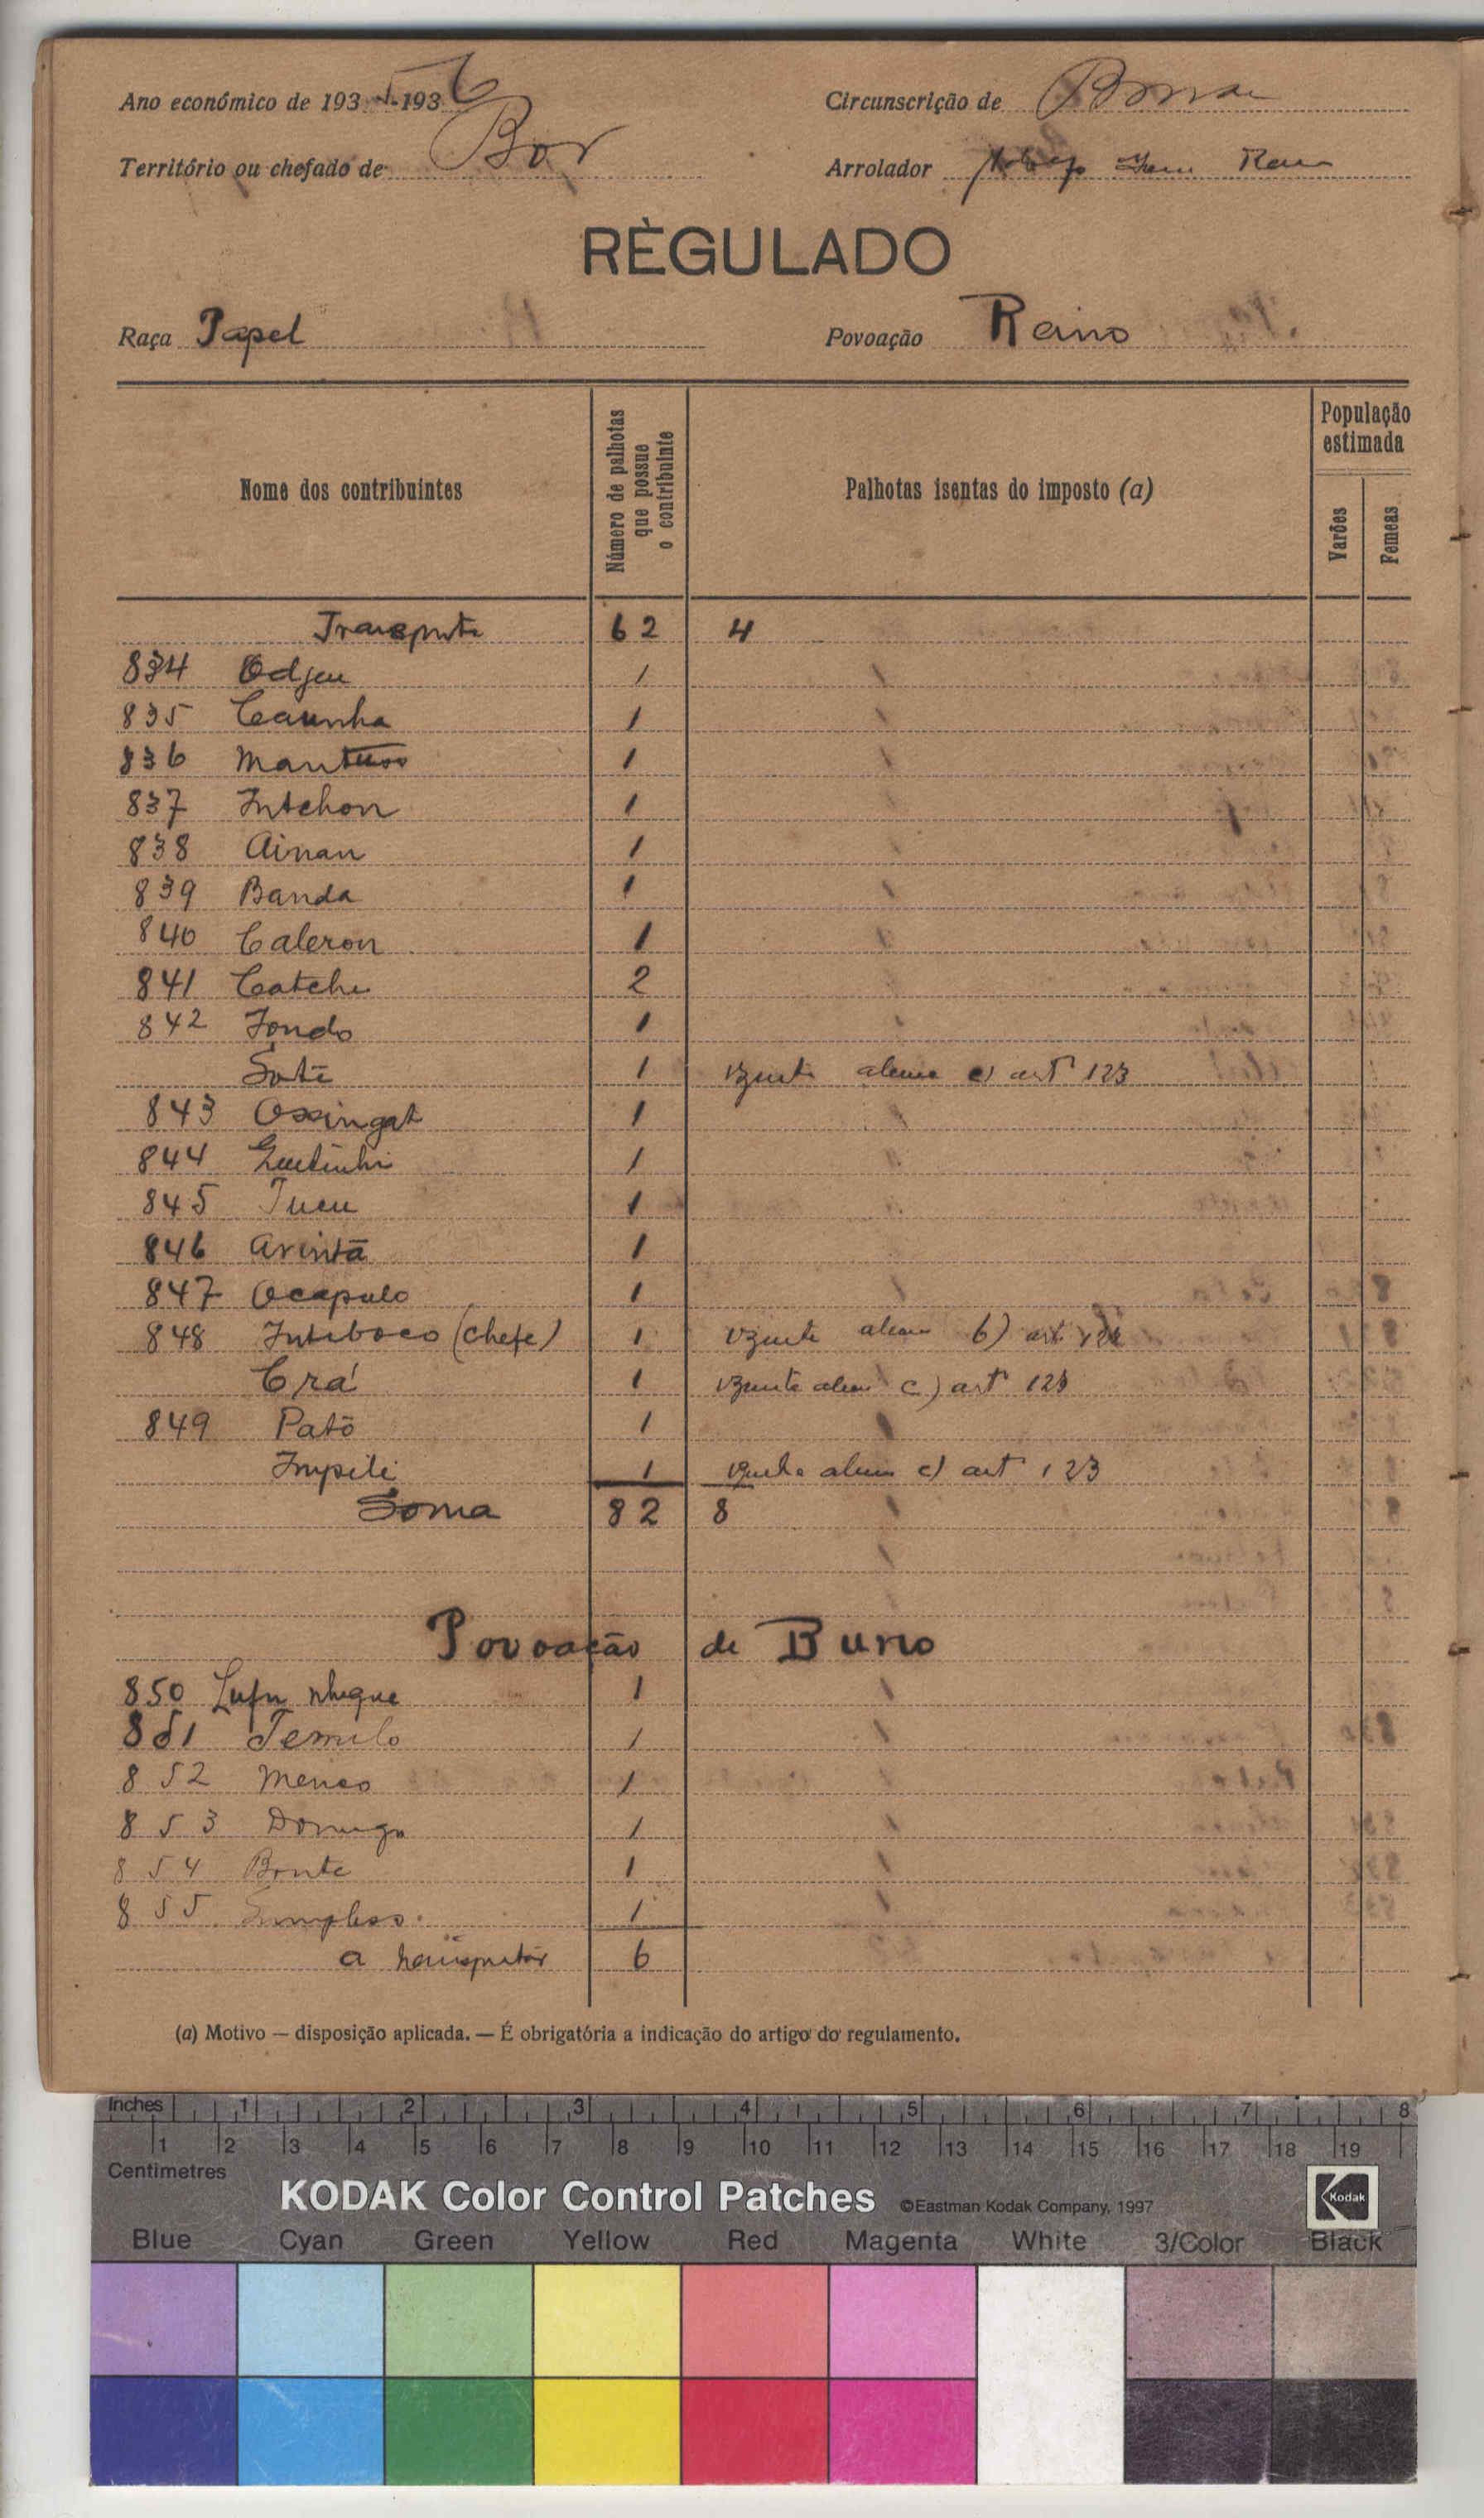 Ano económico de 1935-1936 Circunscrição de
Território ou chefado de Bor Arrolador
RÈGULADO
Raça Papel Povoação Reino
Nome dos contribuintes
Número de palhotas que possue o contribuinte
Palhotas isentas do imposto (a)
População estimada
Varões Femeas
Transporte 62 4
834 Odjeu 1
835 Caunha 1
836 1
837 Intchon 1
838 Ainan 1
839 Banda 1
840 Caleron 1
841 Catchu 2
842 Fondo 1
Sotè 1 art 123
843 Ossingat 1
844 1
845 Tucu 1
846 Arintã 1
847 Ocapulo 1
848 Intiboco (chefe) 1 b) art
Crá 1 c) art 123
849 Patõ 1
Impili 1 c) art 123
Soma 82 8
Povoação de Buno
850 1
851 Temulo 1
852 Menco 1
853 Domingo 1
854 Bonte 1
855 1
a transportar 6
(a) Motivo — disposição aplicada. — É obrigatória a indicação do artigo do regulamento.
Inches 1 2 3 4 5 6 7 8
1 2 3 4 5 6 7 8 9 10 11 12 13 14 15 16 17 18 19
Centimetres
KODAK Color Control Patches ©Eastman Kodak Company, 1997 Kodak
Blue Cyan Green Yellow Red Magenta White 3/Color Black